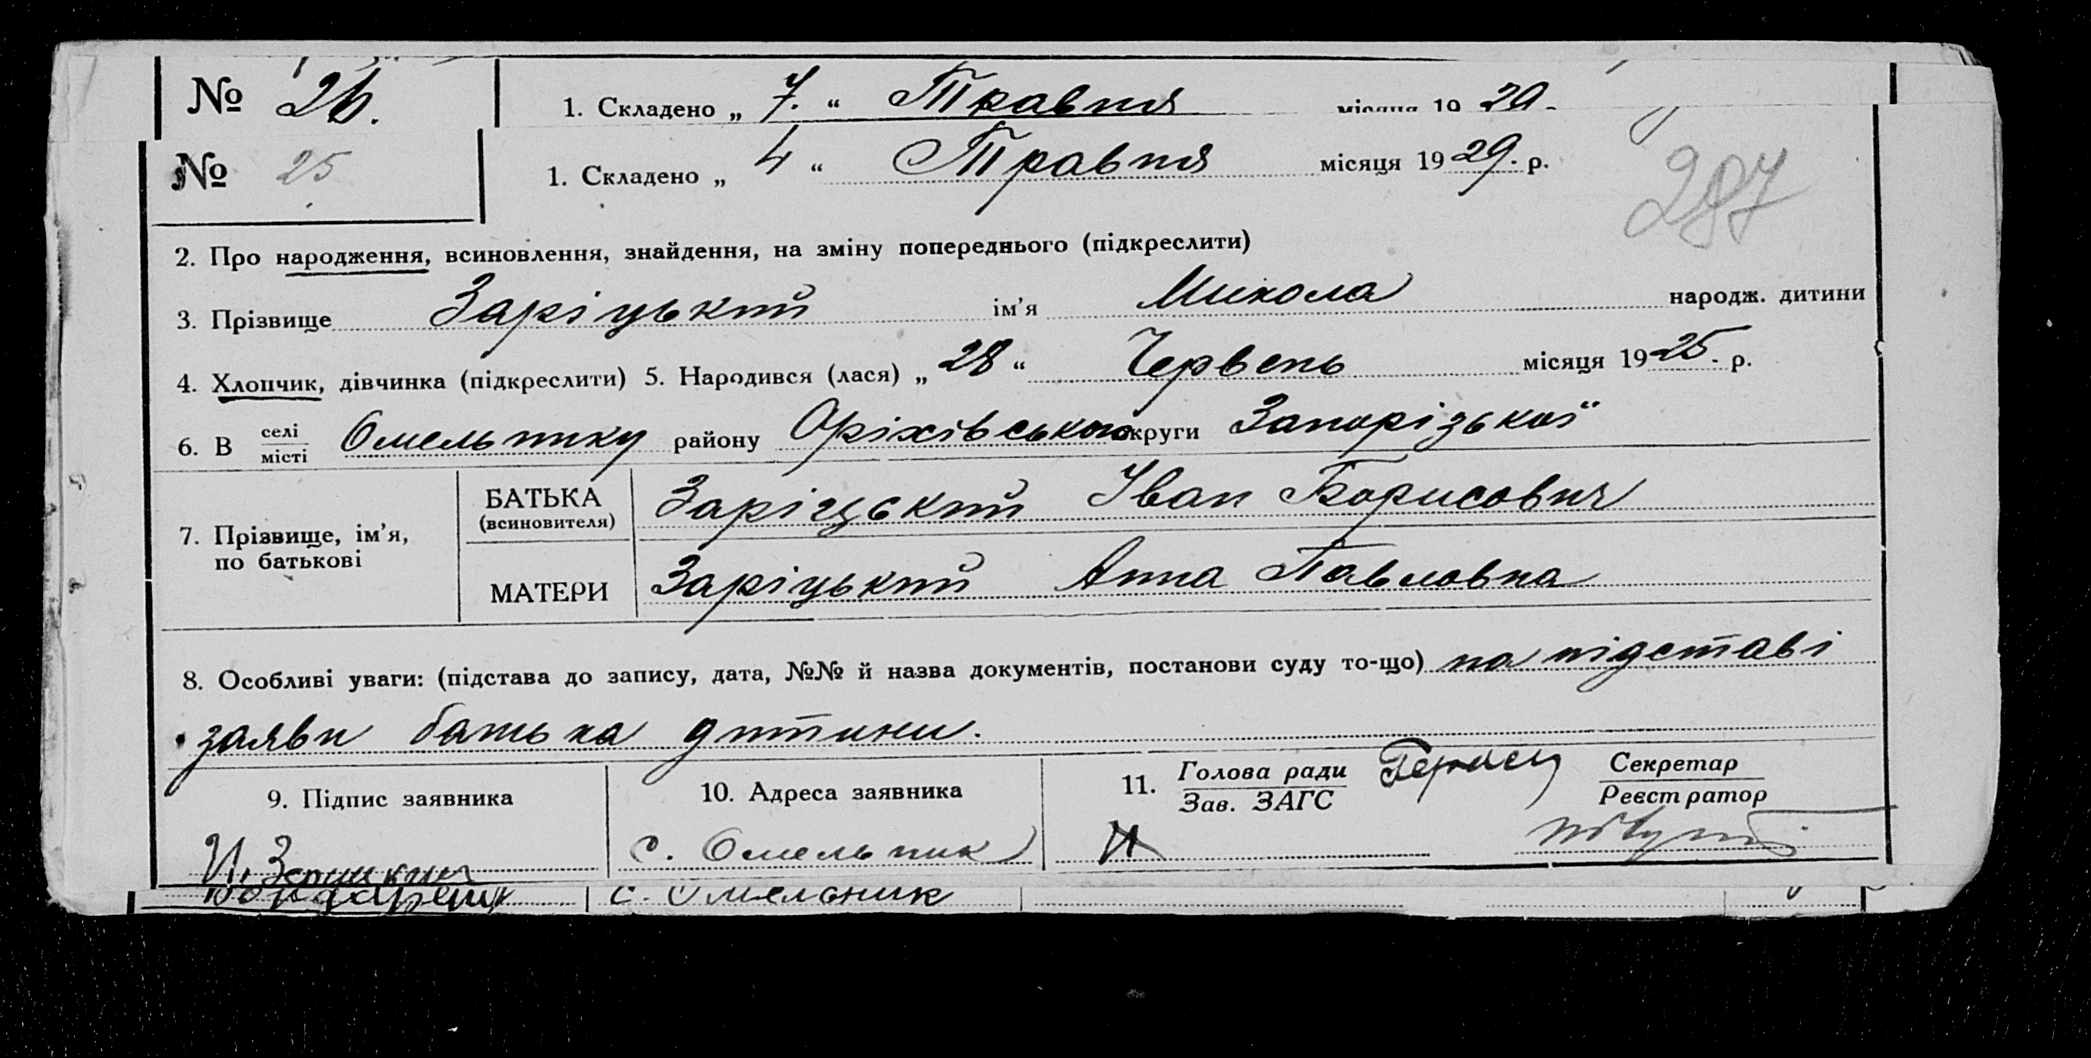 № 26. 1. Складено „ 7. “ Травня місяця 19 29.
№ 25 1. Складено „ 4 “ Травня місяця 19 29. р.
287
2. Про народження, всиновлення, знайдення, на зміну попереднього (підкреслити)
3. Прізвище Заріцький ім’я Микола народж. дитини
4. Хлопчик, дівчинка (підкреслити) 5. Народився (лася) „ 28 “ Червень місяця 19 25. р.
6. В селі місті Омельнику району Оріхівського округи Запорізької
7. Прізвище, ім’я, по батькові
БАТЬКА (всиновителя) Заріцький Іван Борисович
МАТЕРИ Заріцький Анна Павловна
8. Особливі уваги: (підстава до запису, дата, №№ й назва документів, постанови суду то-що) на підставі
заяви батька дитини.
9. Підпис заявника 10. Адреса заявника 11. Голова ради Зав. ЗАГС Секретар Реєстратор
И. с. Омельник
с. Омельник